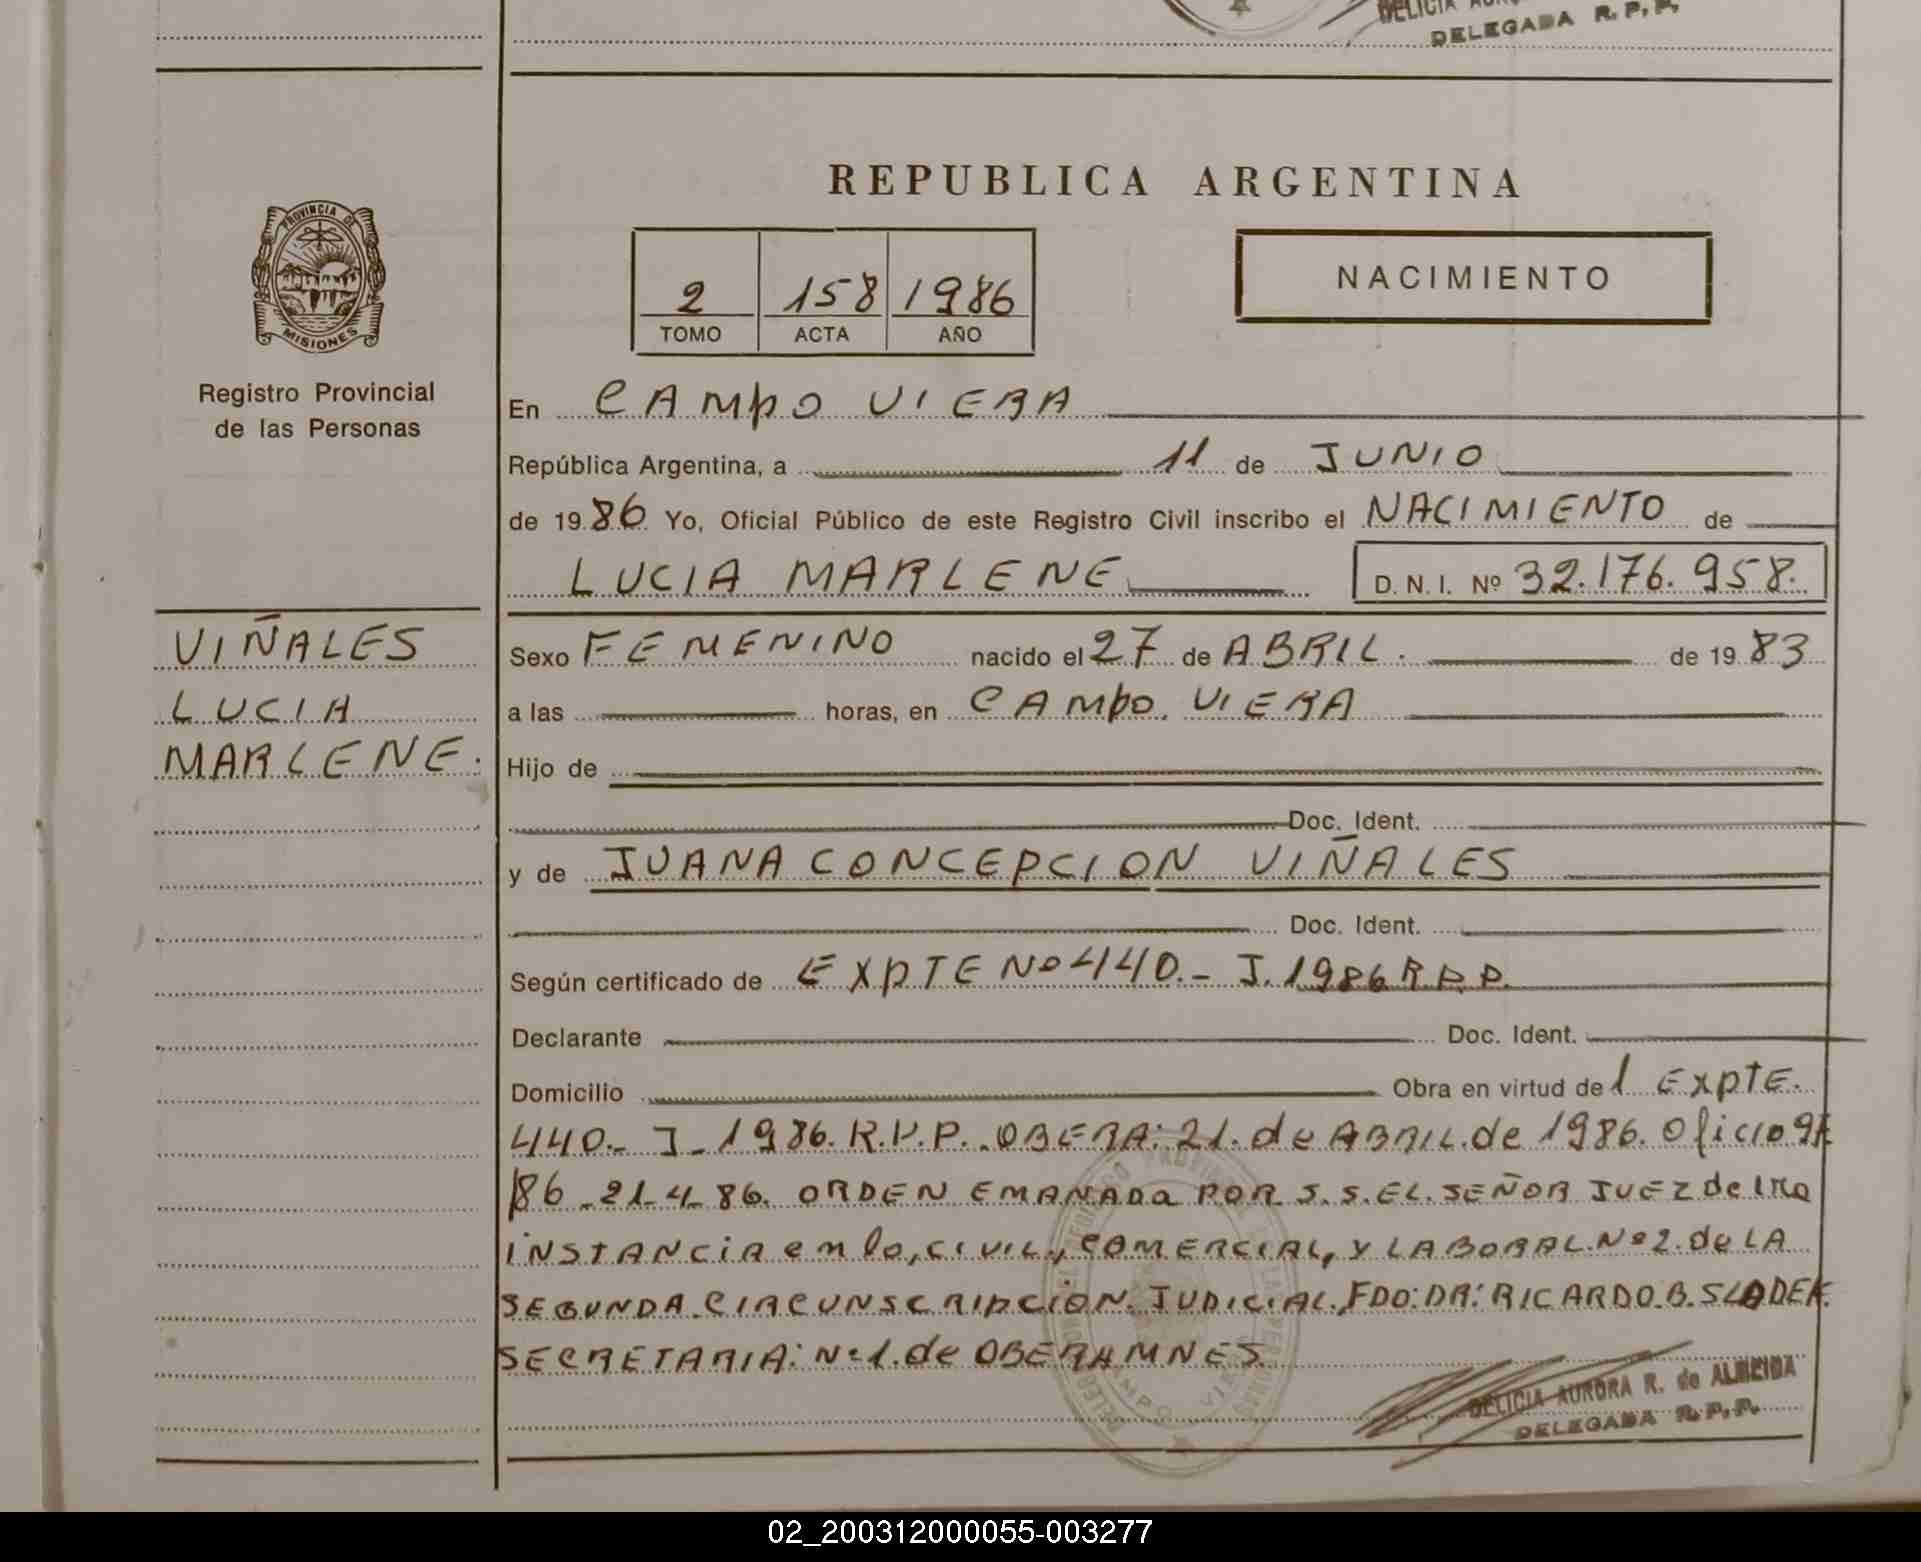 DELEGADA R.P.P.
REPUBLICA ARGENTINA
PROVINCIA DE
MISIONES
2 158 1986
TOMO ACTA AÑO
NACIMIENTO
Registro Provincial
de las Personas
En CAMPO VIERA
República Argentina, a 11 de JUNIO
de 1986 Yo, Oficial Público de este Registro Civil inscribo el NACIMIENTO de
LUCIA MARLENE D.N.I. Nº 32.176.958.
VIÑALES
LUCIA
MARLENE.
Sexo FEMENINO nacido el 27 de ABRIL. de 1983
a las horas, en CAMPO. VIERA
Hijo de
Doc. Ident.
y de JUANA CONCEPCION VIÑALES
Doc. Ident.
Según certificado de EXPTE Nº 440.- J. 1986 R.P.P.
Declarante Doc. Ident.
Domicilio Obra en virtud de 1 EXPTE.
440.- J- 1986. R.P.P. OBERA: 21. de ABRIL. de 1986. Oficio
86 - 21-4-86. ORDEN EMANADA POR S.S. EL. SEÑOR JUEZ de 1ra
INSTANCIA en lo, CIVIL, COMERCIAL, Y LABORAL. Nº 2. de LA
SEGUNDA. CIRCUNSCRIPCIÓN. JUDICIAL, FDO: DR: RICARDO. B. SLADEK.
SECRETARIA: Nº 1. de OBERA MNES
DELICIA AURORA R. de ALMEIDA
DELEGADA R.P.P.
02_200312000055-003277